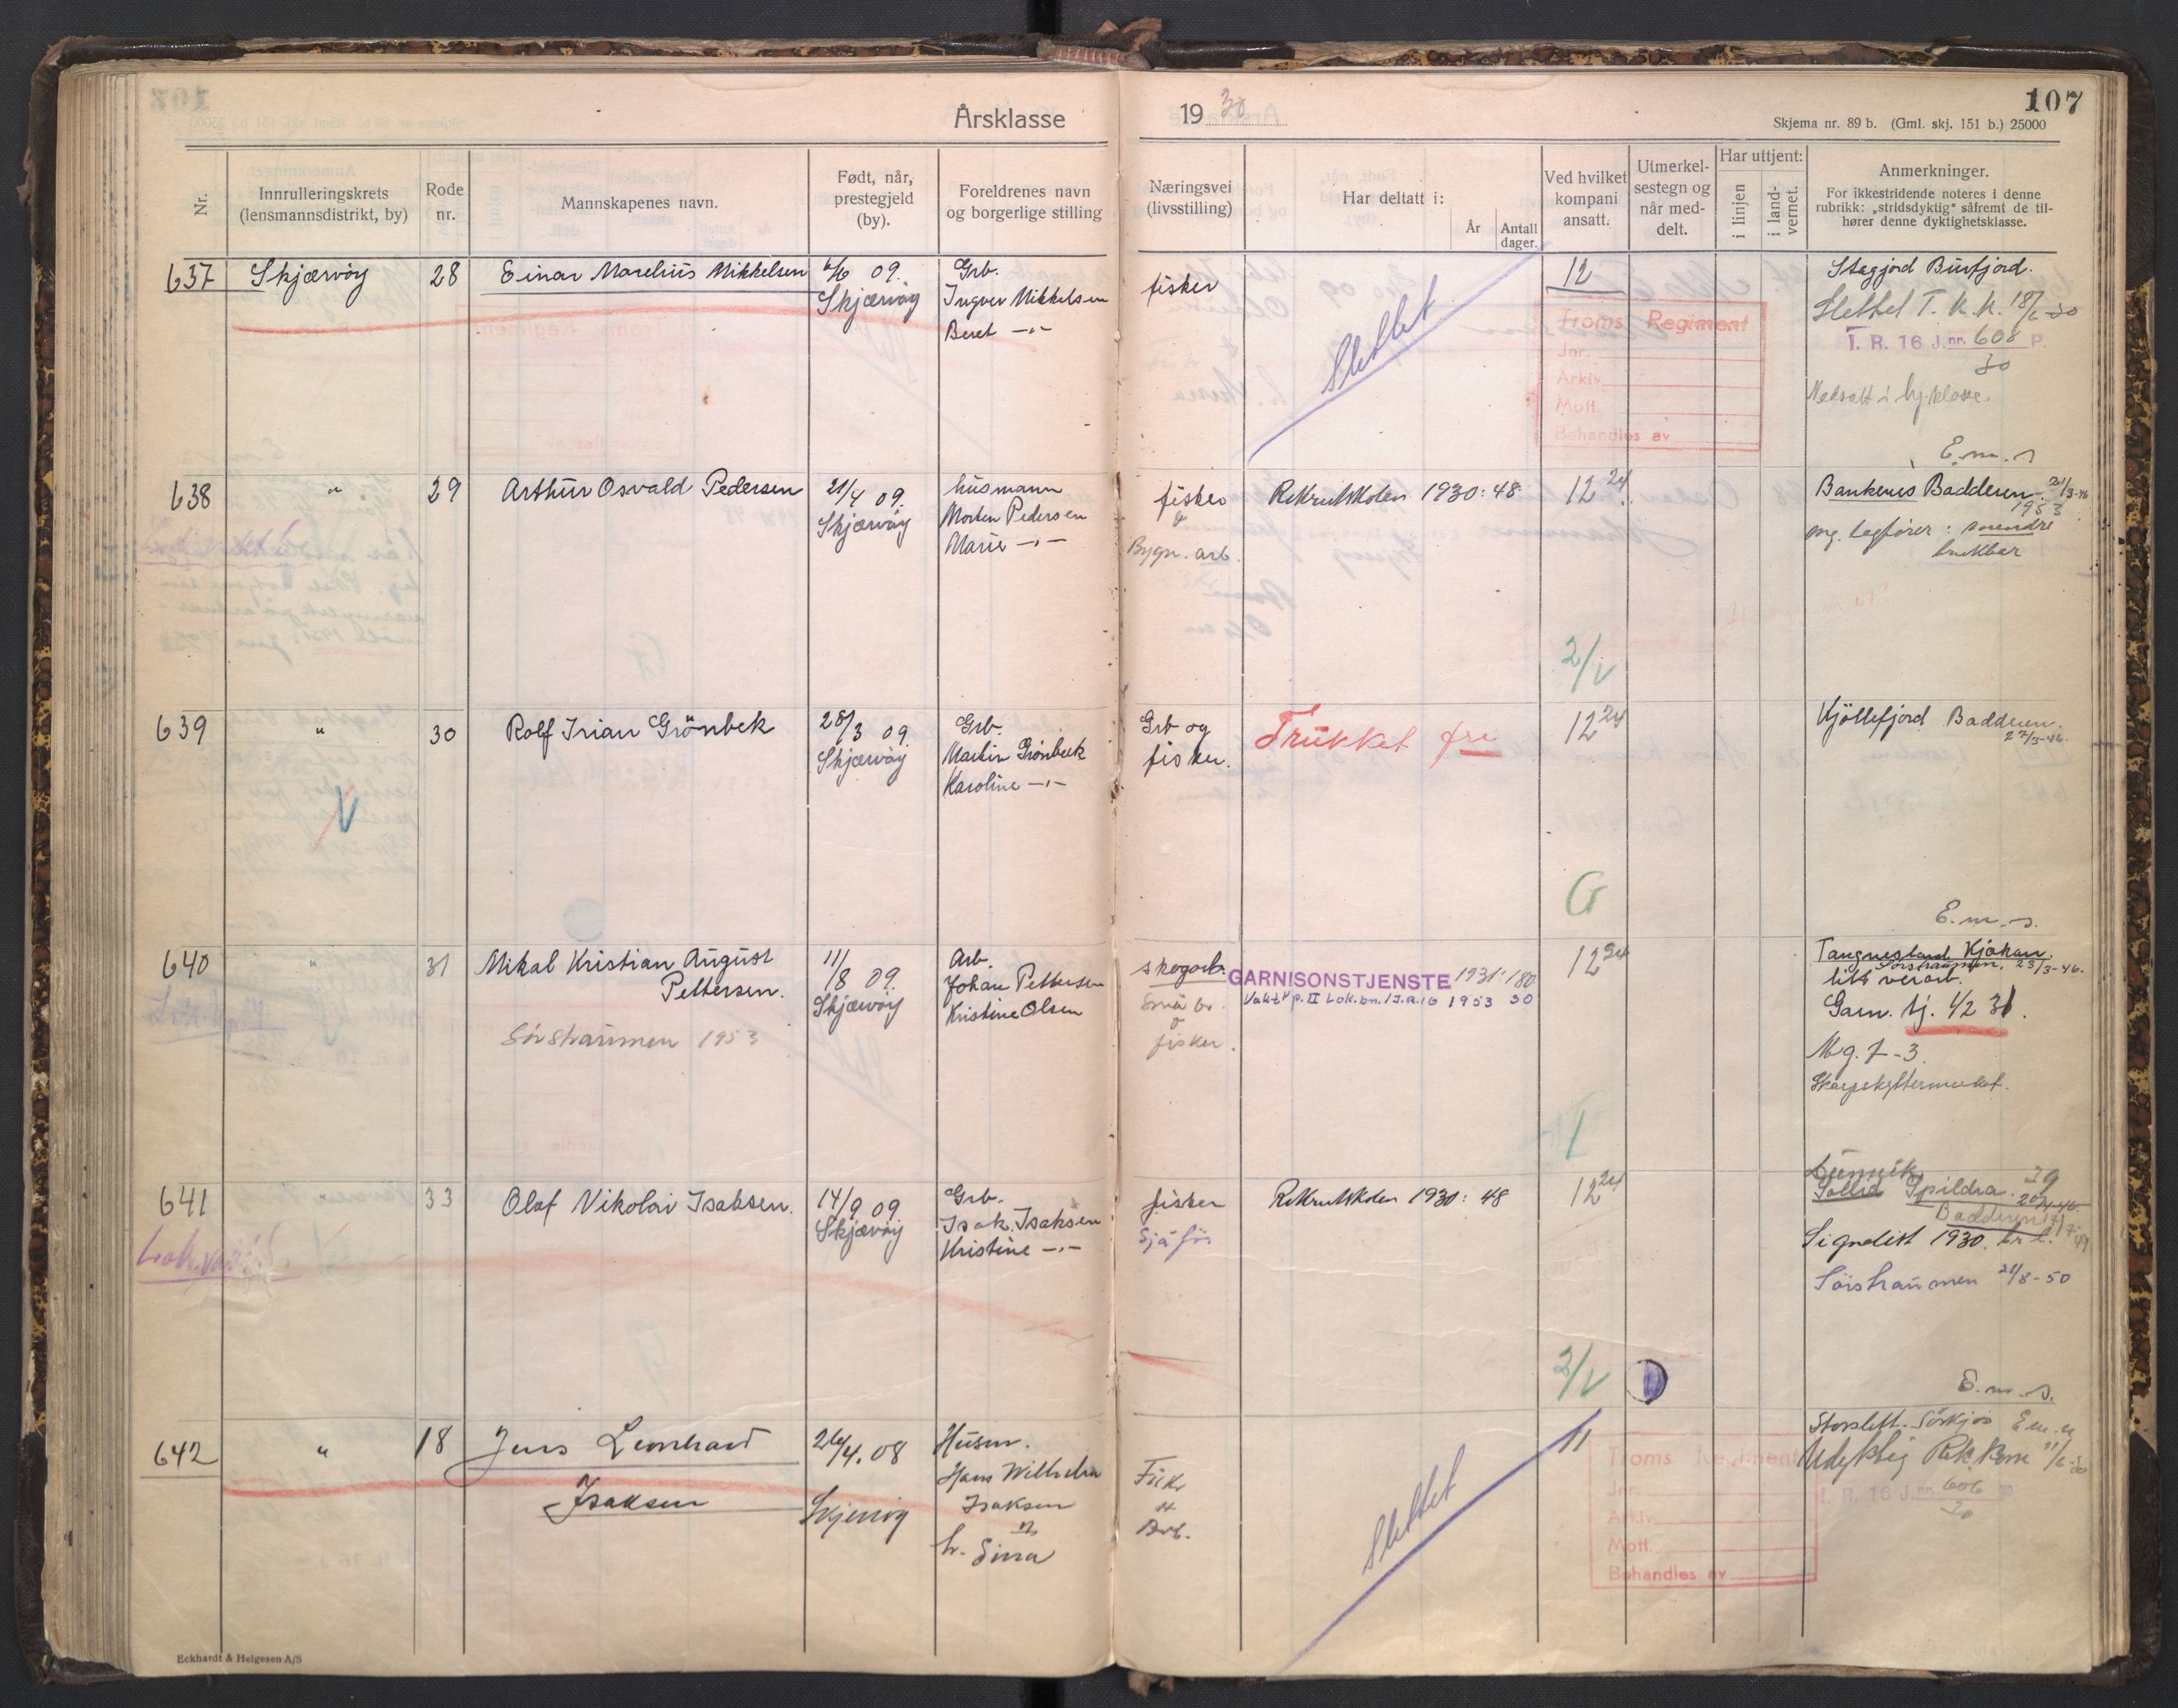 Årsklasse 1930
107
Skjema nr. 89 b. (Gml. skj. 151 b.) 25000
Nr.
Innrulleringskrets
(lensmannsdistrikt, by)
Rode
nr.
Mannskapenes navn.
Født, når,
prestegjeld
(by).
Foreldrenes navn
og borgerlige stilling
Næringsvei
(livsstilling)
Har deltatt i:
År
Antall
dager.
Ved hvilket
kompani
ansatt.
Utmerkel-
sestegn og
når med-
delt.
Har uttjent:
i linjen
i land-
vernet.
Anmerkninger.
For ikkestridende noteres i denne
rubrikk: „stridsdyktig" såfremt de til-
hører denne dyktighetsklasse.
637 Skjærvöy 28 Einar Marelius Mikkelsen 09.
Skjærvöy
Grb.
Ingver Mikkelsen
Beret —"—
fisker
Slettet
12
Troms Regiment
Jnr.
Arkiv
Mott.
Behandles av
Stagjord Burfjord.
Slettet T. k. k. 18/6-30
T. R. 16 J.nr. 608 P.
30
Nedsatt i hj.klasse.
E.m.s
638 " 29 Arthur Osvald Pedersen 21/4 09.
Skjærvöy
husmann
Morten Pedersen
Marie —"—
fisker
Bygn. arb.
Rekrutskolen 1930: 48
12 24
2/V
Bankenes Badderen.
1953
mg. lagfører: mendre
brukbar
639 " 30 Rolf Irian Grönbek 28/3 09.
Skjærvöy
Grb.
Martin Grönbek
Karoline —"—
Grb og
fisker.
Trukket fri
12 24
G
Kjöllefjord Badderen.
27/3-46.
E.m.s.
640 " 31 Mikal Kristian August
Pettersen.
Sörstraumen 1953
11/8 09.
Skjærvöy
Arb.
Johan Pettersen
Kristine Olsen
skogarb.
Små br.
o
fisker.
GARNISONSTJENSTE 1931: 180
Vakt kp. II Lok.bn. I.R. 16 1953 30
12 24
1
Tangnesland Kjækan.
Sörstraumen. 23/3-46.
litt verart.
Garn. tj. 1/2 31.
Mg. 7-3.
Skarpskyttermerket.
641 " 33 Olaf Nikolai Isaksen. 14/9 09
Skjærvöy
Grb.
Isak Isaksen
Kristine —"—
fisker
Sjåför
Rekrutskolen 1930: 48
12 24
2/V
Spildra.
Badderen
Signalist 1930.
Sörstraumen 21/8-50
E.m.s.
642 " 18 Jens Leonhard
Isaksen
26/4. 08
Skjervöy
Husm.
Hans Wilhelm
Isaksen
h. Sina
Fisk.
Arb.
Slettet
11
Troms Regiment
Jnr.
Arkiv
Mott.
Behandles av
Storslett. Sörkjos E m s
Udyktig Rek.kom 11/6-30
T. R. 16 J.nr. 606 P
30
Eckhardt & Helgesen A/S